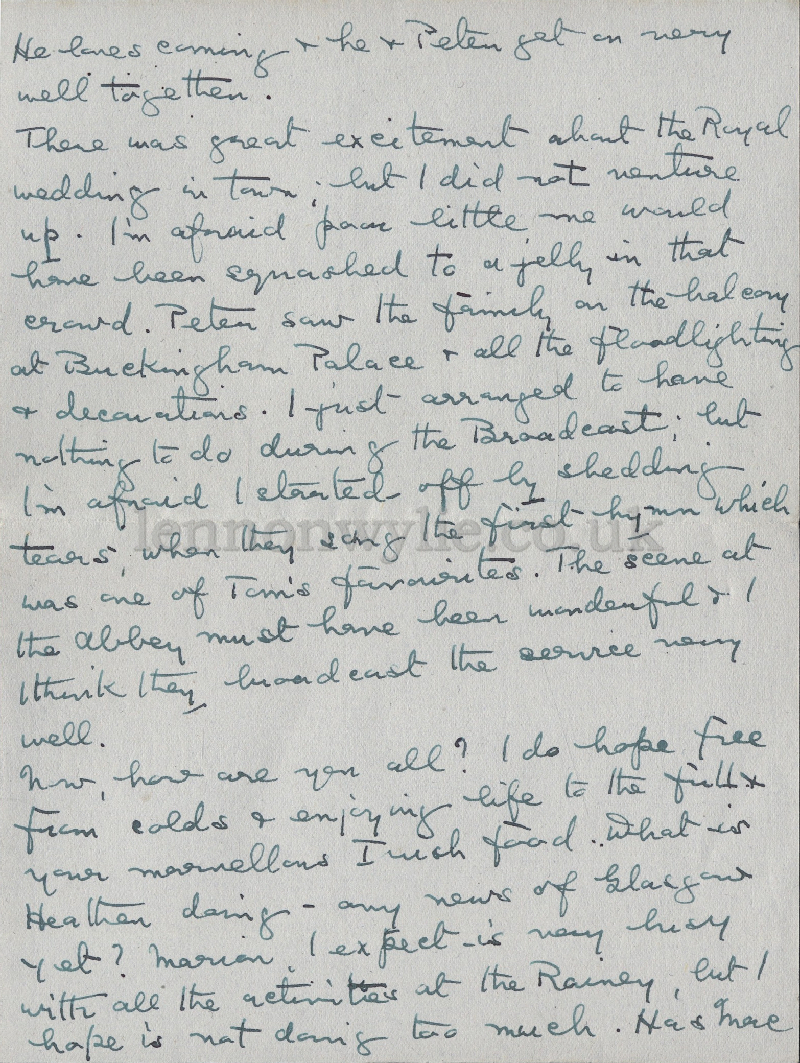 He loves coming & he & Peter get on very
well together.
There was great excitement about the Royal
wedding in town; but I did not venture
up. I'm afraid poor little me would
have been squashed to a jelly in that
crowd. Peter saw the family on the balcony
at Buckingham Palace & all the floodlighting
& decorations. I just arranged to have
nothing to do during the Broadcast; but
I'm afraid I started off by shedding
tears, when they sang the first hymn which
was one of Tom's favourites. The scene at
the Abbey must have been wonderful & I
think they broadcast the service very
well.
Now, how are you all? I do hope free
from colds & enjoying life to the full &
your marvellous Irish food. What is
Heather doing - any news of Glasgow
yet? Marion, I expect is very busy
with all the activities at the Rainey, but I
hope is not doing too much. Has Mac
lennonwylie.co.uk